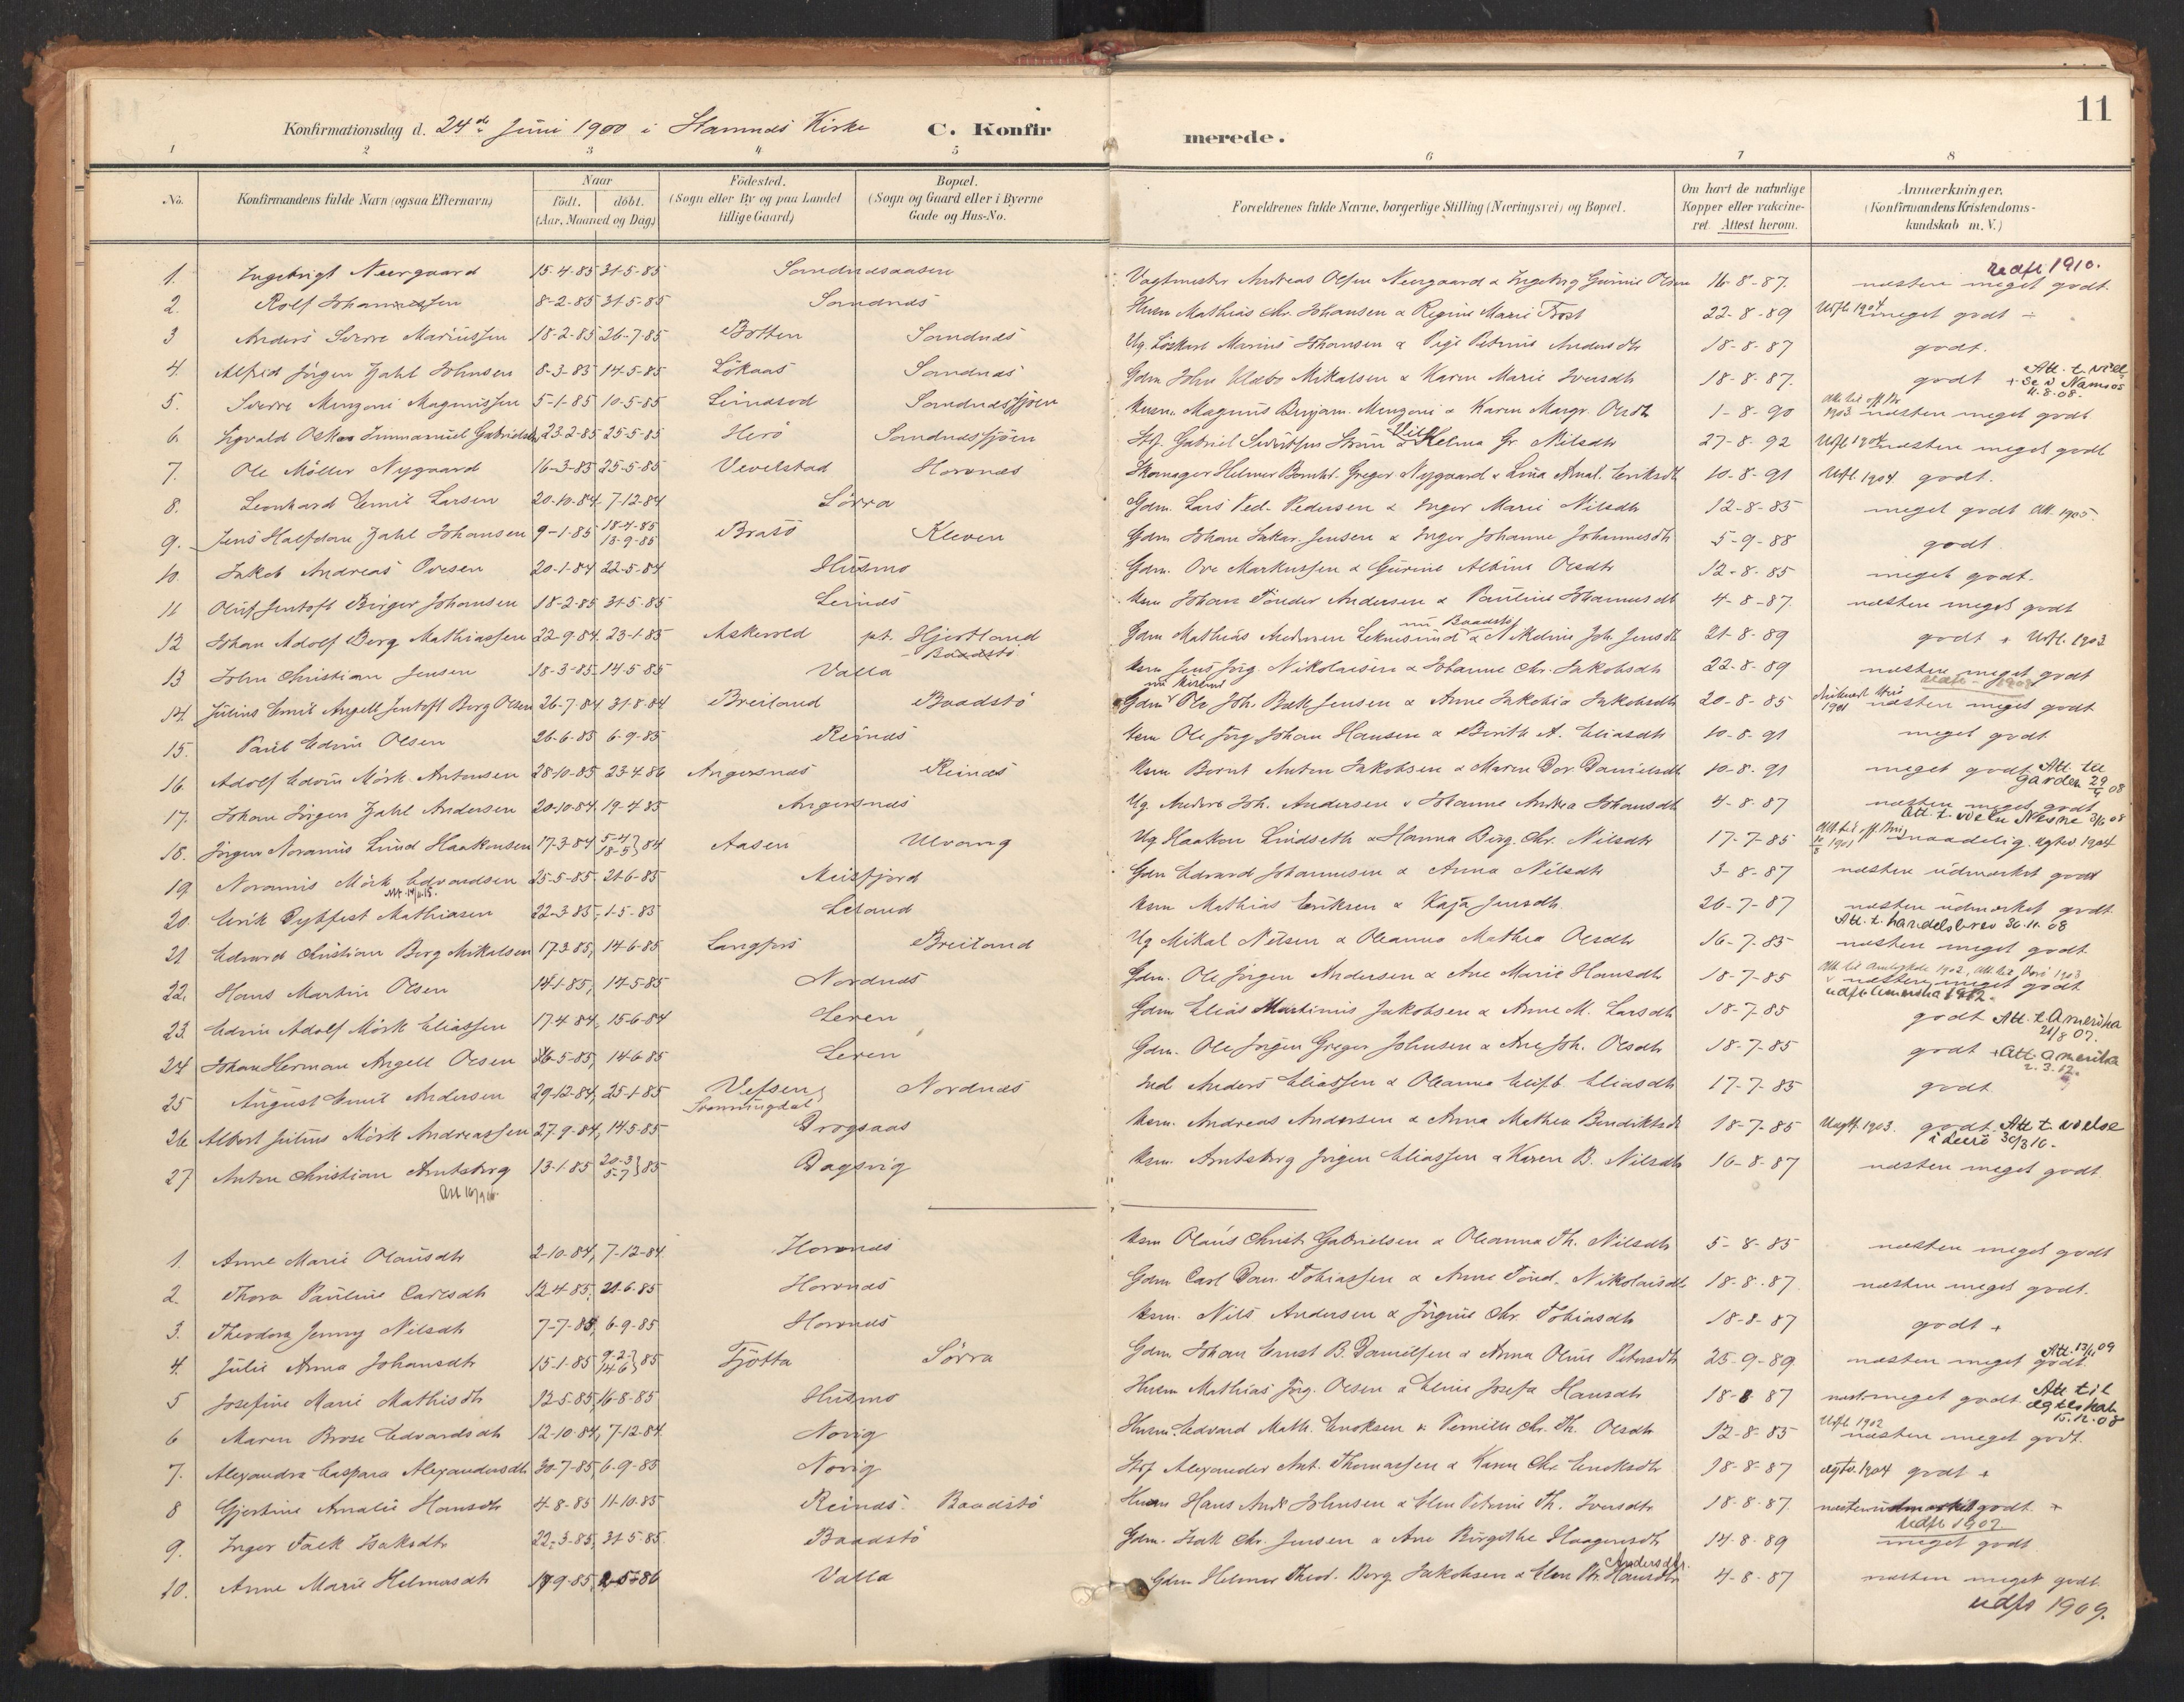 11
Konfirmationsdag d. 24de Juni 1900 i Stamnæs Kirke C. Konfirmerede.
1 2 3 4 5 6 7 8
No. Konfirmandens fulde Navn (ogsaa Efternavn) Naar født. døbt. (Aar, Maaned og Dag) Fødested. (Sogn eller By og paa Landet tillige Gaard) Bopæl. (Sogn og Gaard eller i Byerne Gade og Hus-No. Forældrenes fulde Navne, borgerlige Stilling (Næringsvei) og Bopæl. Om havt de naturlige Kopper eller vaccineret. Attest herom. Anmærkninger. (Konfirmandens Kristendomskundskab m. V.)
1. Ingebrigt Neergaard 15-4-85 31-5-85 Sandnæsaasen Vagtmester Andreas Olsen Neergaard & Ingeborg Gurine Olsen 16-8-87. næsten meget godt. udfl 1910.
2. Rolf Johannessen 8-2-85 31-5-85 Sandnæs Husm Mathias Chr. Johansen & Regine Marie Frost 22-8-89 Utfl 1904 meget godt
3 Anders Sverre Mariussen 18-2-85 26-7-85 Botten Sandnæs Ug. Løskarl Marius Johansen & Pige Petrine Andersdtr 18-8-87 godt.
4. Alfred Jørgen Zahl Johnsen 8-3-85 14-5-85 Løkaas Sandnæs Gdm John Ulabo Mikalsen & Karen Marie Iversdtr 18-8-87. godt Att. t. viel + Se d Namsos 11.8.08.
5. Sverre Menzoni Magnussen 5-1-85 10-5-85 Leinesod Sandnæssjøen Husm. Magnus Benjam. Menzoni & Karen Margr. Olsdtr 1-8-90 1903 næsten meget godt
6. Sigvald Oskar Immanuel Gabrielsen 23-2-85 25-5-85 Herø Sandnæssjøen Stf. Gabriel Sivertsen Strøm & Vilhelma Gr. Nilsdtr 27-8-92 Utfl 1904 næsten meget godt
7. Ole Møller Nygaard 16-3-85 25-5-85 Vevelstad Hornnæs Skomager Helmer Bernht. Greger Nygaard & Lina Amal. Eriksdtr 10-8-91 Utfl. 1904 godt.
8. Leonhard Emil Larsen 20-10-84 7-12-84 Sørra Gdm. Lars Ped. Pedersen & Inger Marie Nilsdtr 12-8-85 meget godt Att. 1905.
9. Jens Halfdan Zahl Johansen 9-1-85 18-4-85 13-9-85 Brasø Kleven Gdm Johan Zakar. Jensen & Inger Johanne Johannesdtr 5-9-88 godt
10. Jakob Andreas Ovesen 20-1-84 22-5-84 Husmo Gdm. Ove Markussen & Gurine Albine Olsdtr 12-8-85 meget godt.
11 Oluf Jentoft Birger Johansen 18-2-85 31-5-85 Leines Ksm Johan Tønder Andersen & Pauline Johannesdtr 4-8-87. næsten meget godt
12 Johan Adolf Berg Mathiassen 22-9-84. 23-1-85 Askervold pt. Hjertland Baadstø Gdm Mathias Andersen Leknesund nu Baadstø & Nikoline Joh. Jensdtr 21-8-89 godt + Utfl. 1903
13 John Christian Jensen 18-3-85. 14-5-85 Valla Ksm Jens Jørg. Nikolaisen & Johanne Chr. Jakobsdtr 22-8-89 næsten meget godt
14. Julius Emil Angell Jentoft Berg Olsen 26-7-84 31-8-84 Breiland Baadstø Gdm Ole Joh. Buck Jensen & Anne Jakobia Jakobsdtr 20-8-85 1901 næsten meget godt
15. Paul Edvin Olsen 26-6-85 6-9-85 Reines Ksm Ole Jørg. Johan Hansen & Berith A. Eliasdtr 10-8-91 meget godt
16. Adolf Edvin Mørk Antonsen 28-10-85 23-4-86 Angersnæs Reines Ksm Bernt Anton Jakobsen & Maren Dor. Danielsdtr 10-8-91 meget godt Att. til Garden 29/4 08
17. Johan Jørgen Zahl Andersen 20-10-84 19-4-85 Angersnæs Ug. Anders Joh. Andersen & Johanne Andrea Johansdtr 4-8-87 næsten meget godt Att. t. vielse Nesne 3/5 08
18. Jørgen Noranius Lund Haakonsen 17-3-84 5-4 18-5}84 Aasen Ulvang Ug Haakon Lindseth & Hanna Birg. Chr. Nilsdtr 17-7-85 1901 maadelig. ægtev 1904
19 Noranius Mørk Edvardsen 25-5-85. 21-6-85 Meisfjord Gdm Edvard Johannesen & Anna Nilsdtr 3-8-87 næsten udmærket godt
20. Erik Dybfest Mathiasen 22-3-85. 1-5-85 Leland Ksm Mathias Eriksen & Kaja Jensdtr 26-7-87 næsten udmærket godt Att. t. handelsbrev 30.11.08
21 Edvard Christian Berg Mikalsen 17.3.85, 14-6-85 Langfors Breiland Ug Mikal Nilsen & Oleanna Mathea Olsdtr 16-7-85 næsten meget godt.
22. Hans Martin Olsen 14-1-85, 14-5-85 Nordnæs Gdm. Ole Jørgen Andersen & Ane Marie Hansdtr 18-7-85 næsten meget godt udfl Amerika 1912.
23. Edvin Adolf Mørk Eliassen 17-4-84, 15-6-84 Leren Gdm Elias Martinius Jakobsen & Anne M. Larsdtr 18-7-85 godt Att. t. Amerika 21/8 07.
24 Johan Herman Angell Olsen 26-5-85, 14-6-85 Leren Gdm. Ole Jørgen Greger Johnsen & Ane Joh. Olsdtr 18-7-85 godt + Att. Amerika 2.3.12.
25 August Emil Andersen 29-12-84, 25-1-85 Vefsen, Svenningdal Nordnæs Ind Anders Eliassen & Oleanna Elisb. Eliasdtr 17-7-85 godt.
26. Albert Julius Mørk Andreassen 27-9-84, 14-5-85 Drogsaas Ksm. Andreas Andersen & Anna Mathea Bendiktsdr 18-7-85 Utfl. 1903. godt. Att t. vielse i Lurø 30/3 10.
27 Anton Christian Arntsberg 13-1-85 20-3 5-7}85 Dagsvig Ksm. Arntsberg Jørgen Eliassen & Karen B. Nilsdtr 16-8-87 næsten meget godt.
1. Anne Marie Olausdtr 2-10-84, 7-12-84 Hornnæs Ksm Olaus Christ. Gabrielsen & Oleanna Th. Nilsdtr 5-8-85 næsten meget godt
2. Thora Pauline Carlsdtr 12-4-85, 21-6-85 Hornnæs Gdm Carl Dan. Tobiassen & Anne Tønd. Nikolaisdtr 18-8-87 næsten meget godt.
3. Theodora Jenny Nilsdtr 7-7-85, 6-9-85 Hornnæs Ksm. Nils Andersen & Jørgine Chr. Tobiasdtr 18-8-87 godt +
4. Julie Anna Johansdtr 15-1-85 9-2 14-6}85 Tjøtta Sørra Gdm Johan Ernst B. Danielsen & Anna Oline Petersdtr 25-9-89. næsten meget godt. Att. 13/11 09
5 Josefine Marie Mathisdtr 12-5-85, 16-8-85 Husmo Husm Mathias Jørg. Olsen & Eline Josefa Hansdtr 18-8-87 næst. meget godt. Att til ægteskab 15.12.08
6 Maren Brose Edvardsdtr 12-10-84, 7-12-84 Novig Husm. Edvard Math. Enoksen & Pernille Chr. Th. Olsdtr 12-8-85 Utfl. 1902 næsten meget godt.
7. Alexandra Caspara Alexandersdtr 30-7-85, 6-9-85 Novig Stf Alexander Ant. Thomassen & Karen Chr. Enoksdtr 18-8-87 ægtev. 1904 godt +
8 Gjertine Amalie Hansdtr 4-8-85 11-10-85 Reines. Baadstø Husm Hans Andr. Johnsen & Elen Petrine Th. Iversdtr 18-8-87. næsten udmærket godt. + Udfl 1902
9. Inger Falk Isaksdtr 22-3-85, 31-5-85 Baadstø Gdm. Isak Chr. Jensen & Ane Birgithe Haagensdtr 14-8-89 meget godt.
10. Anne Marie Helmersdtr 19-9-85, 2-5-86 Valla Gdm Helmer Theod. Berg Jakobsen & Elen Pr. Hansdtr Andersdtr. 4-8-87 næsten meget godt. udfl 1909.